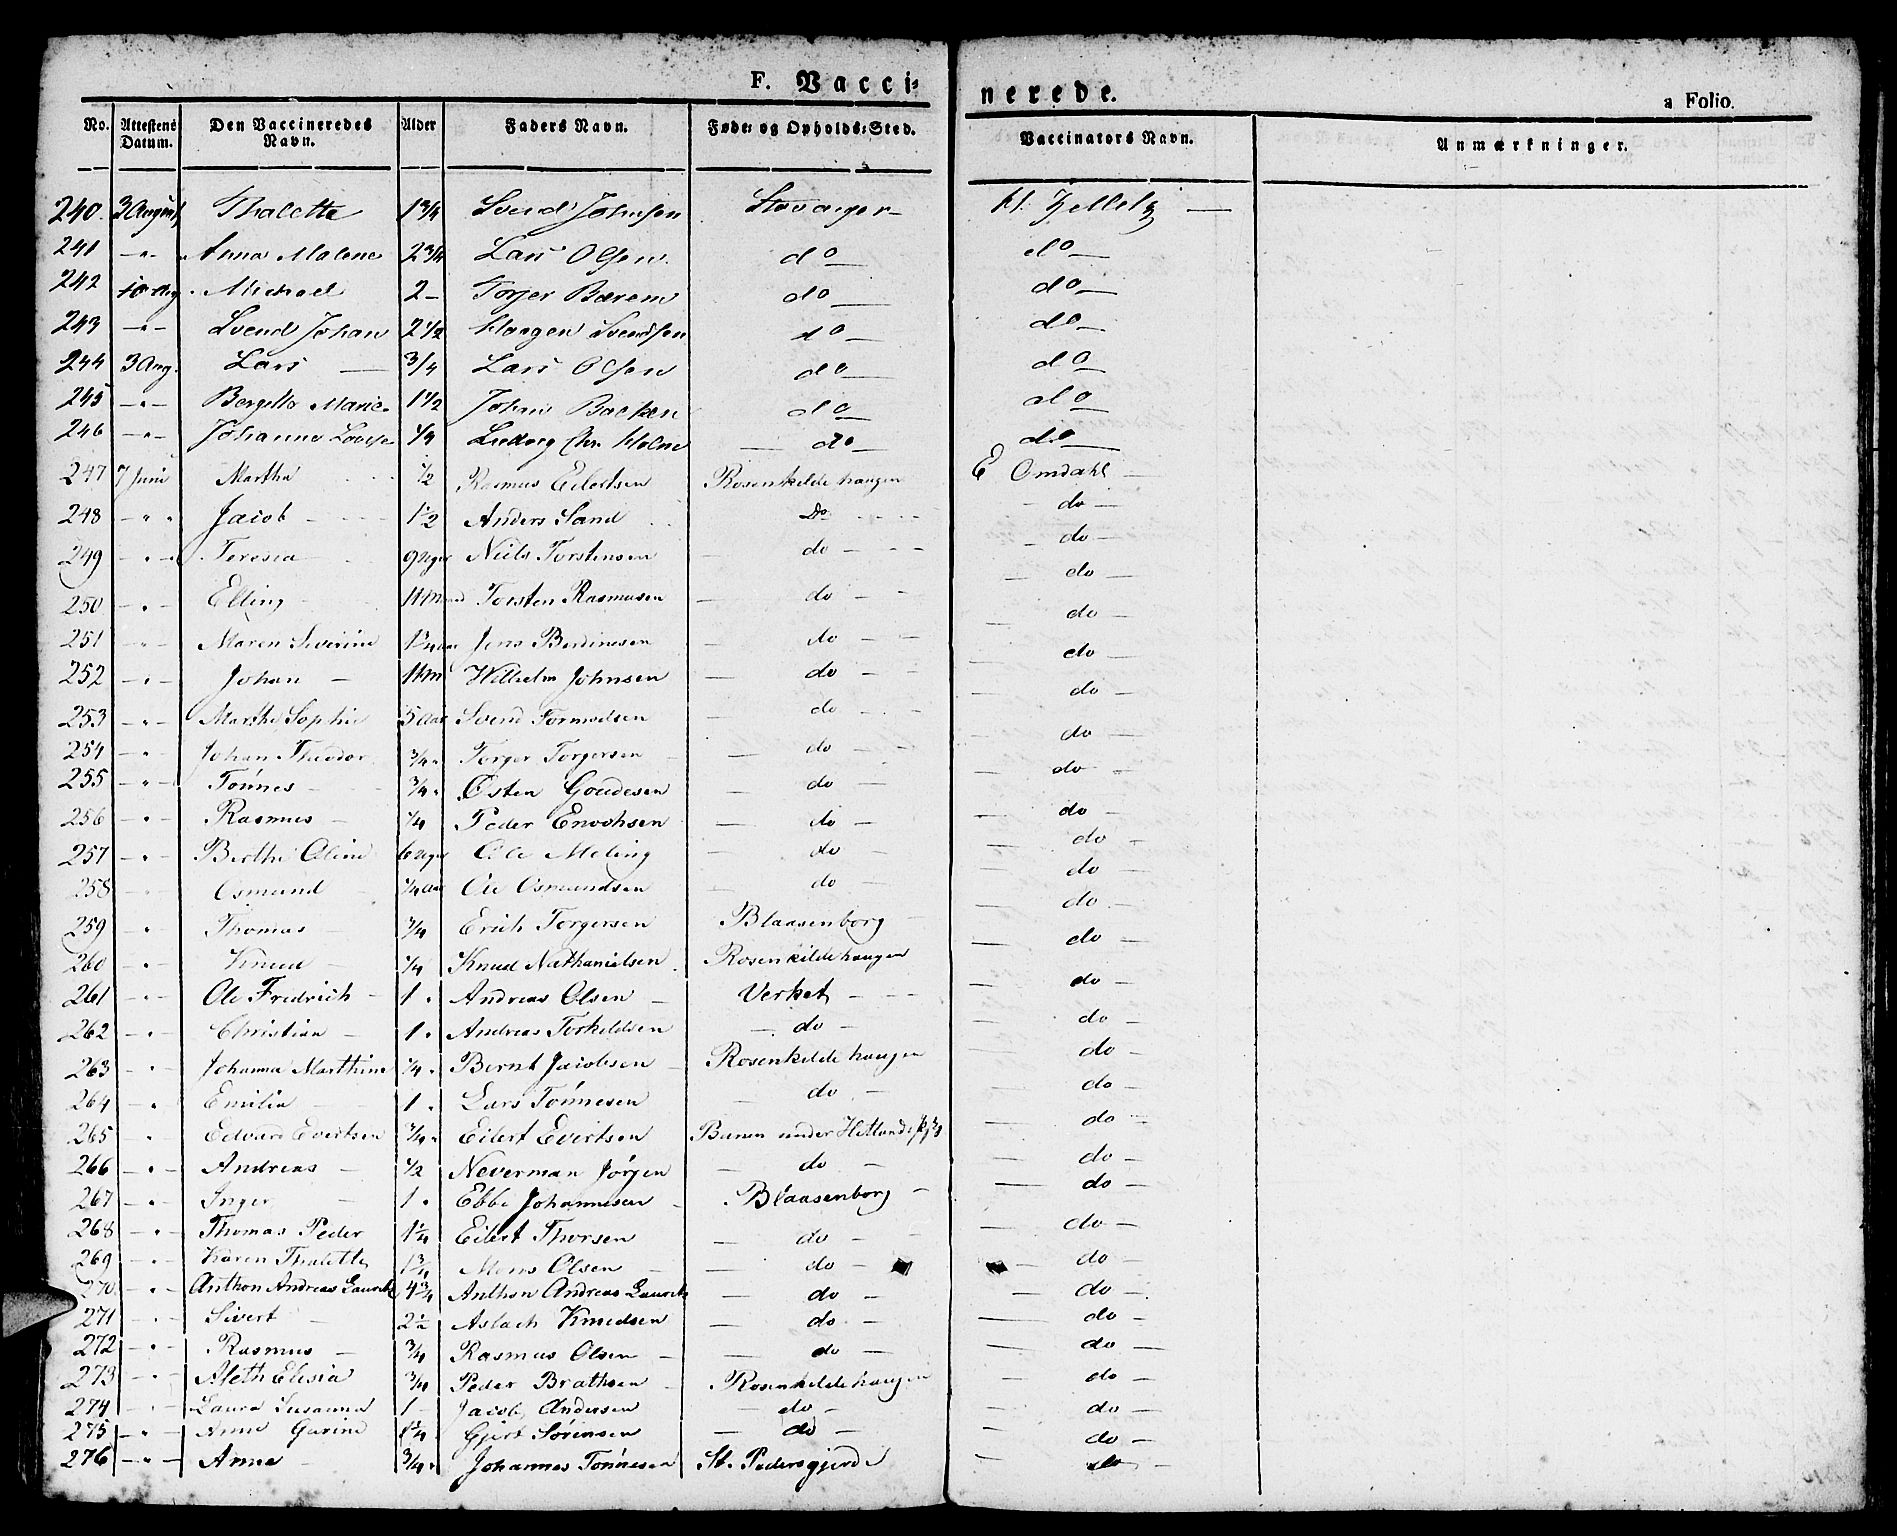 F. Vacci=
nerede.
a Folio.
No. Attestens Datum. Den Vaccineredes Navn. Alder Faders Navn. Føde= og Opholds=Sted. Vaccinators Navn. Anmærkninger.
240. 3 August Thalette 1 3/4 Svend Johnsen Stavanger — —
241 — " — Anna Malene 2 3/4 Lars Olsen do — do —
242 10 Aug Michael 2 — Torjer Bærem do — do —
243 — " — Svend Johan 2 1/2 Haagen Svendsen do — do —
244 3 Aug. Lars — 3/4 Lars Olsen do — do —
245 — " — Bergitte Marie 1 1/2 Johan Backen do — do —
246 — " — Johanna Lovise 1/4 Ludvig Chr. Holm — do — do —
247 7 Juni Martha 1/2 Rasmus Eilertsen Rosenkildehaugen E Omdahl —
248 — " " Jacob 1 1/2 Anders Sand Do — do —
249 — " — Teresia 9 Uger Niels Torstensen — do — — do —
250 — " — Elling 11 Maaned Torsten Rasmusen — do — — do —
251 — " — Maren Severine 1 1/4 Aar Jens Berdinesen — do — — do —
252 — " — Johan — 11 M Wilhelm Johnsen — do — — do —
253 — " — Marthe Sophie 5 Aar Svend Tormodsen — do — — do —
254 — " — Johan Theodor 3/4 " Torger Torgersen — do — — do —
255 — " — Tönnes 3/4 " Østen Goudesen — do — — do —
256 — " — Rasmus — 1/4 Peder Enochsen — do — — do —
257 — " — Berthe Oline 6 Uger Ole Meling — do — — do —
258 — " — Osmund — 1/4 Aar Ole Osmundsen — do — — do —
259 — " — Thomas — 3/4 Erich Torgersen Blaasenborg — — do —
260 — " — Knud — 1/4 Knud Nathanielsen Rosenkildehaugen — do —
261 — " — Ole Fredrich — 1 " Andreas Olsen — Verket — — do —
262 — " — Christian — 1 " Andreas Torkildsen — do — — do —
263 — " — Johanna Marthine 1/4 " Bernt Jacobsen — Rosenkildehaugen — do —
264 — " — Emilia — 1 " Lars Tönnesen — do — — do —
265 — " — Edvard Evertsen 3/4 " Eilert Evertsen Banen under Hetlands — do —
266 — " — Andreas — 1/2 Neverman Jörgen — do — — do —
267 — " — Inger — 1 " Ebbe Johannesen — Blaasenborg — — do —
268 — " — Thomas Peder 1 1/4 Eilert Thorsen — do — — do —
269 — " — Karen Thalette 1 3/4 Mons Olsen — — do — — do —
270 — " — Anthon Andreas Lauritz 4 3/4 Anthon Andreas Lauritz — do — — do —
271 — " — Sivert — 2 1/2 Aslach Knudsen — do — — do —
272 — " — Rasmus — 3/4 Rasmus Olsen — — do — — do —
273 — " — Aleth Elisia 3/4 Peder Brathsen — Rosenkildehaugen — do —
274 — " — Laura Susanna 1 — Jacob Andersen — do — — do —
275 — " — Anne Gurine 1 1/4 Gjert Sörensen — do — — do —
276 — " — Anna — 3/4 " Johannes Tönnesen St. Pedersgjerde — do —